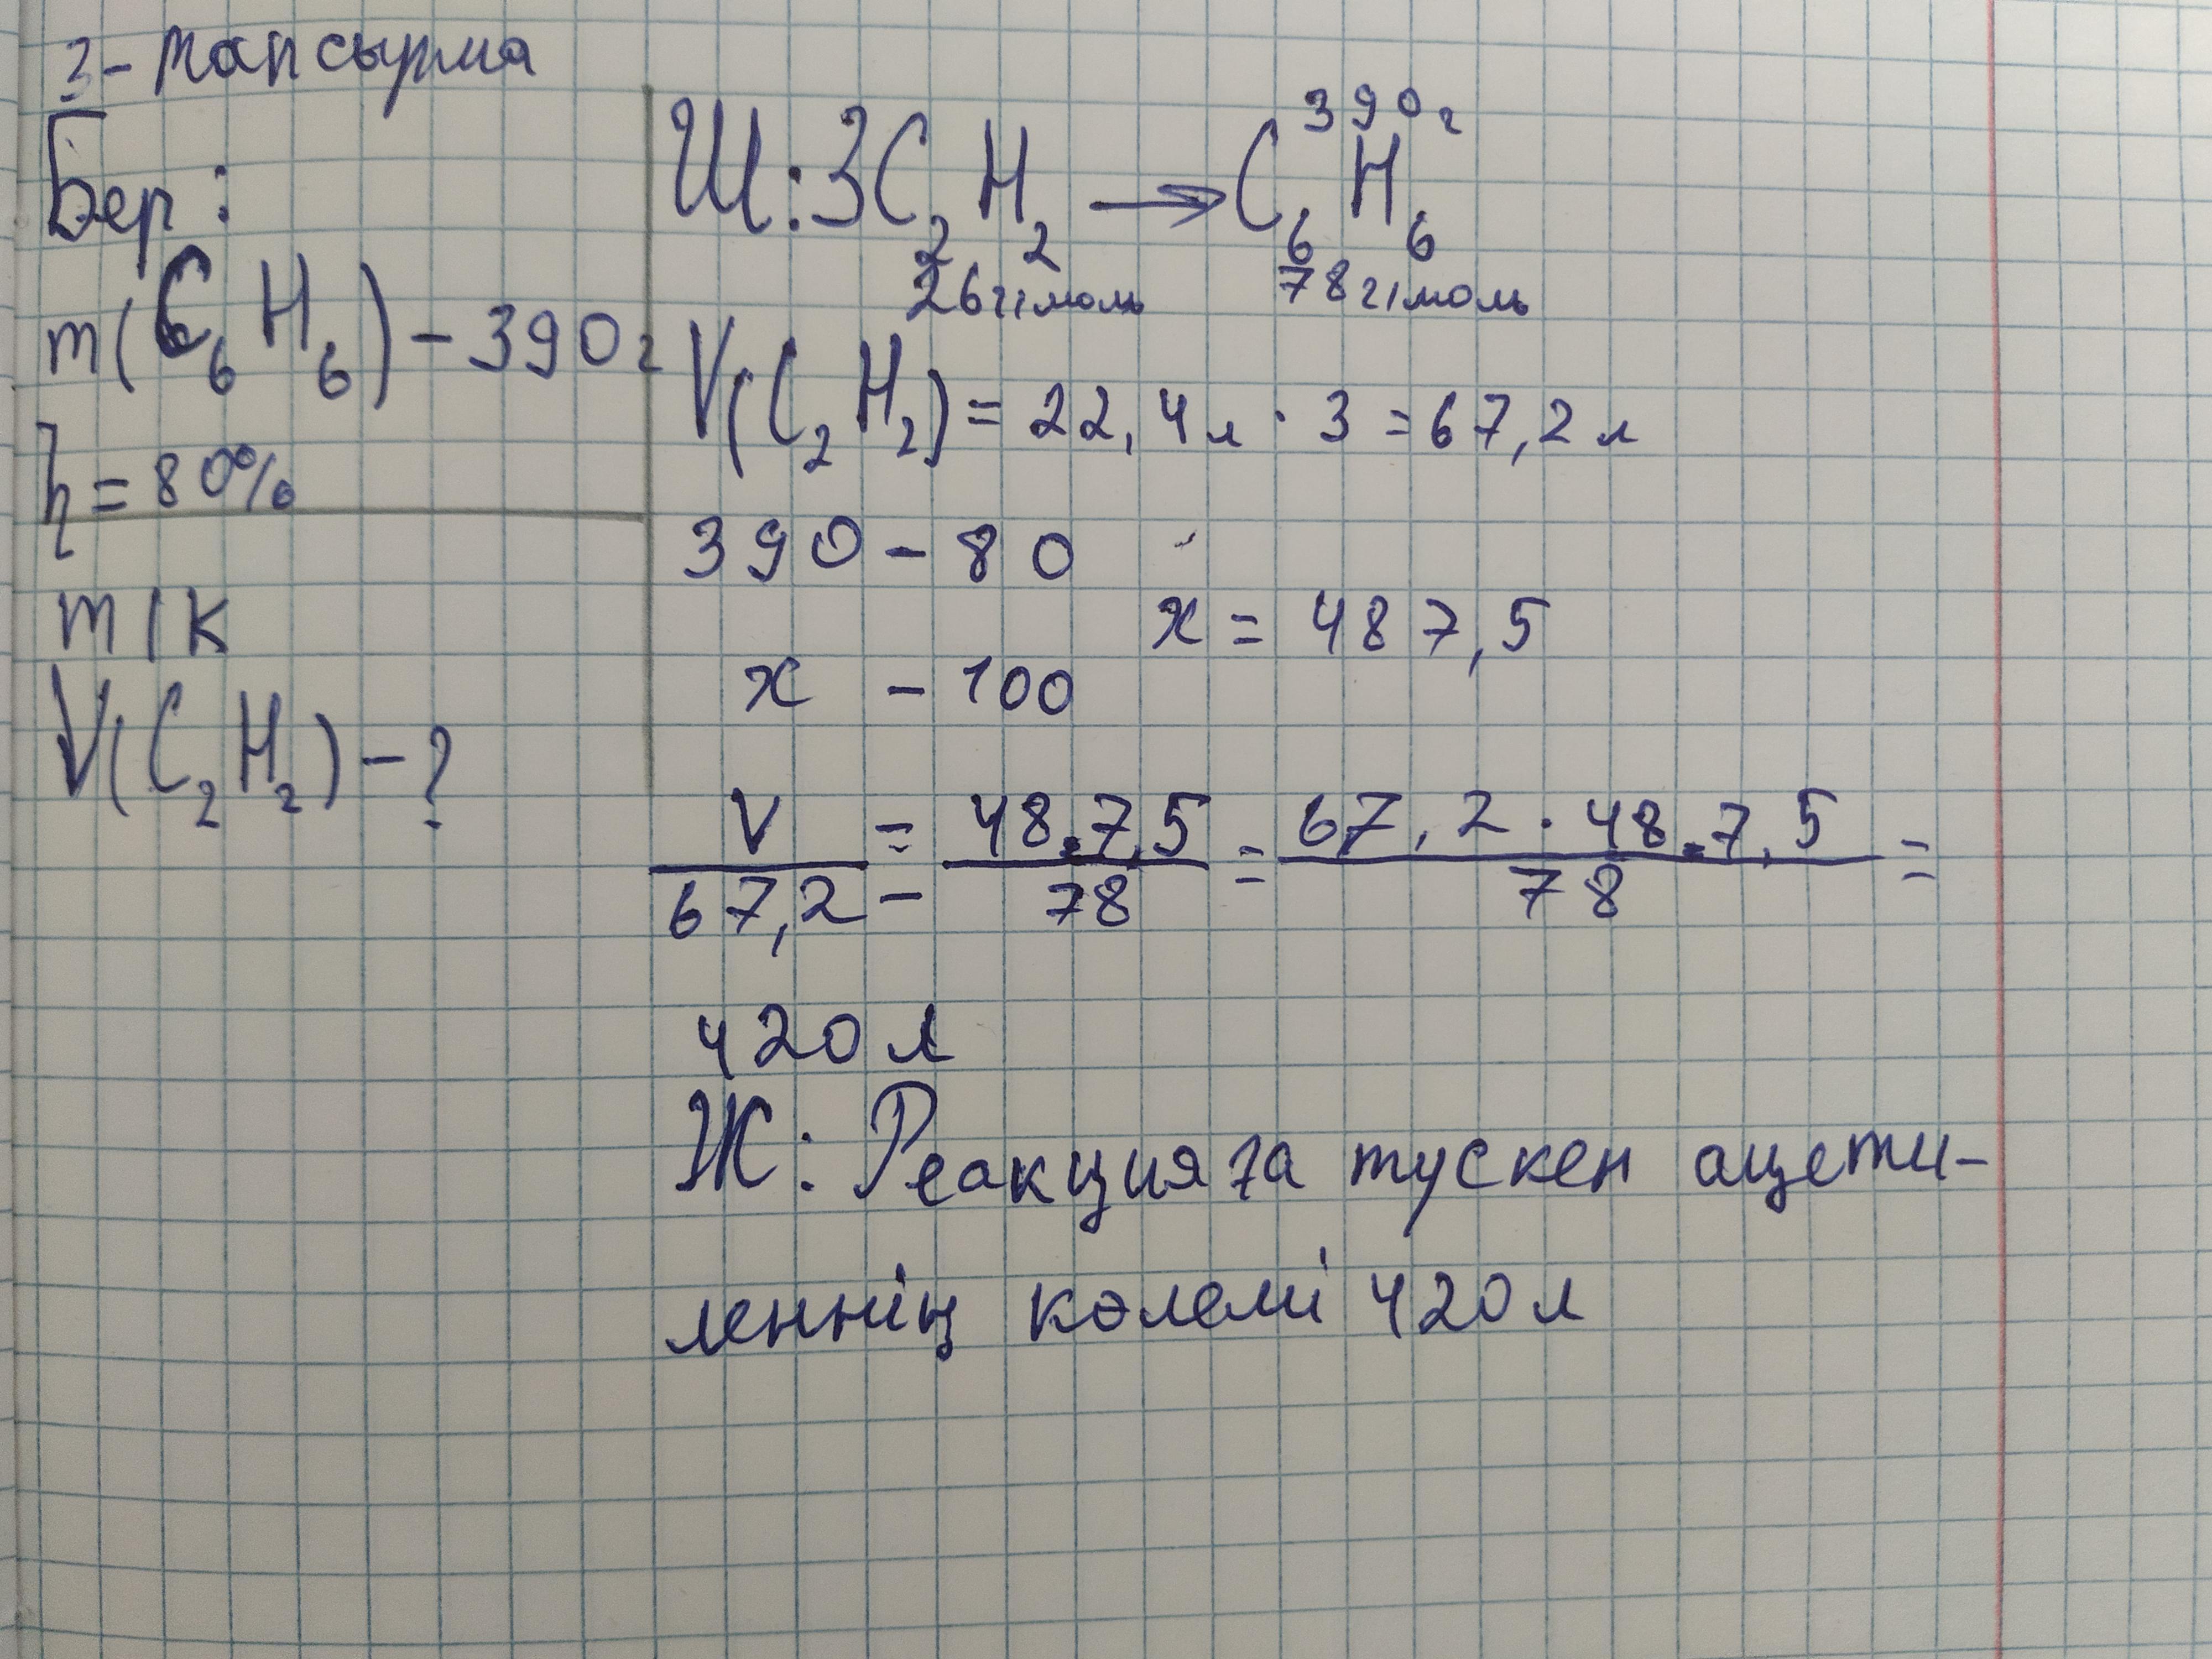 3-тапсырма
Бер:
m(C₆H₆) - 390г
η = 80%
т/к
V(C₂H₂) - ?
390г
Ш: 3C₂H₂ → C₆H₆
26г/моль 78г/моль
V(C₂H₂) = 22,4л · 3 = 67,2л
390 - 80
x = 487,5
x - 100
V/67,2 = 487,5/78 = 67,2 · 487,5/78 =
420л
Ж: Реакцияға түскен ацети-
леннің көлемі 420л